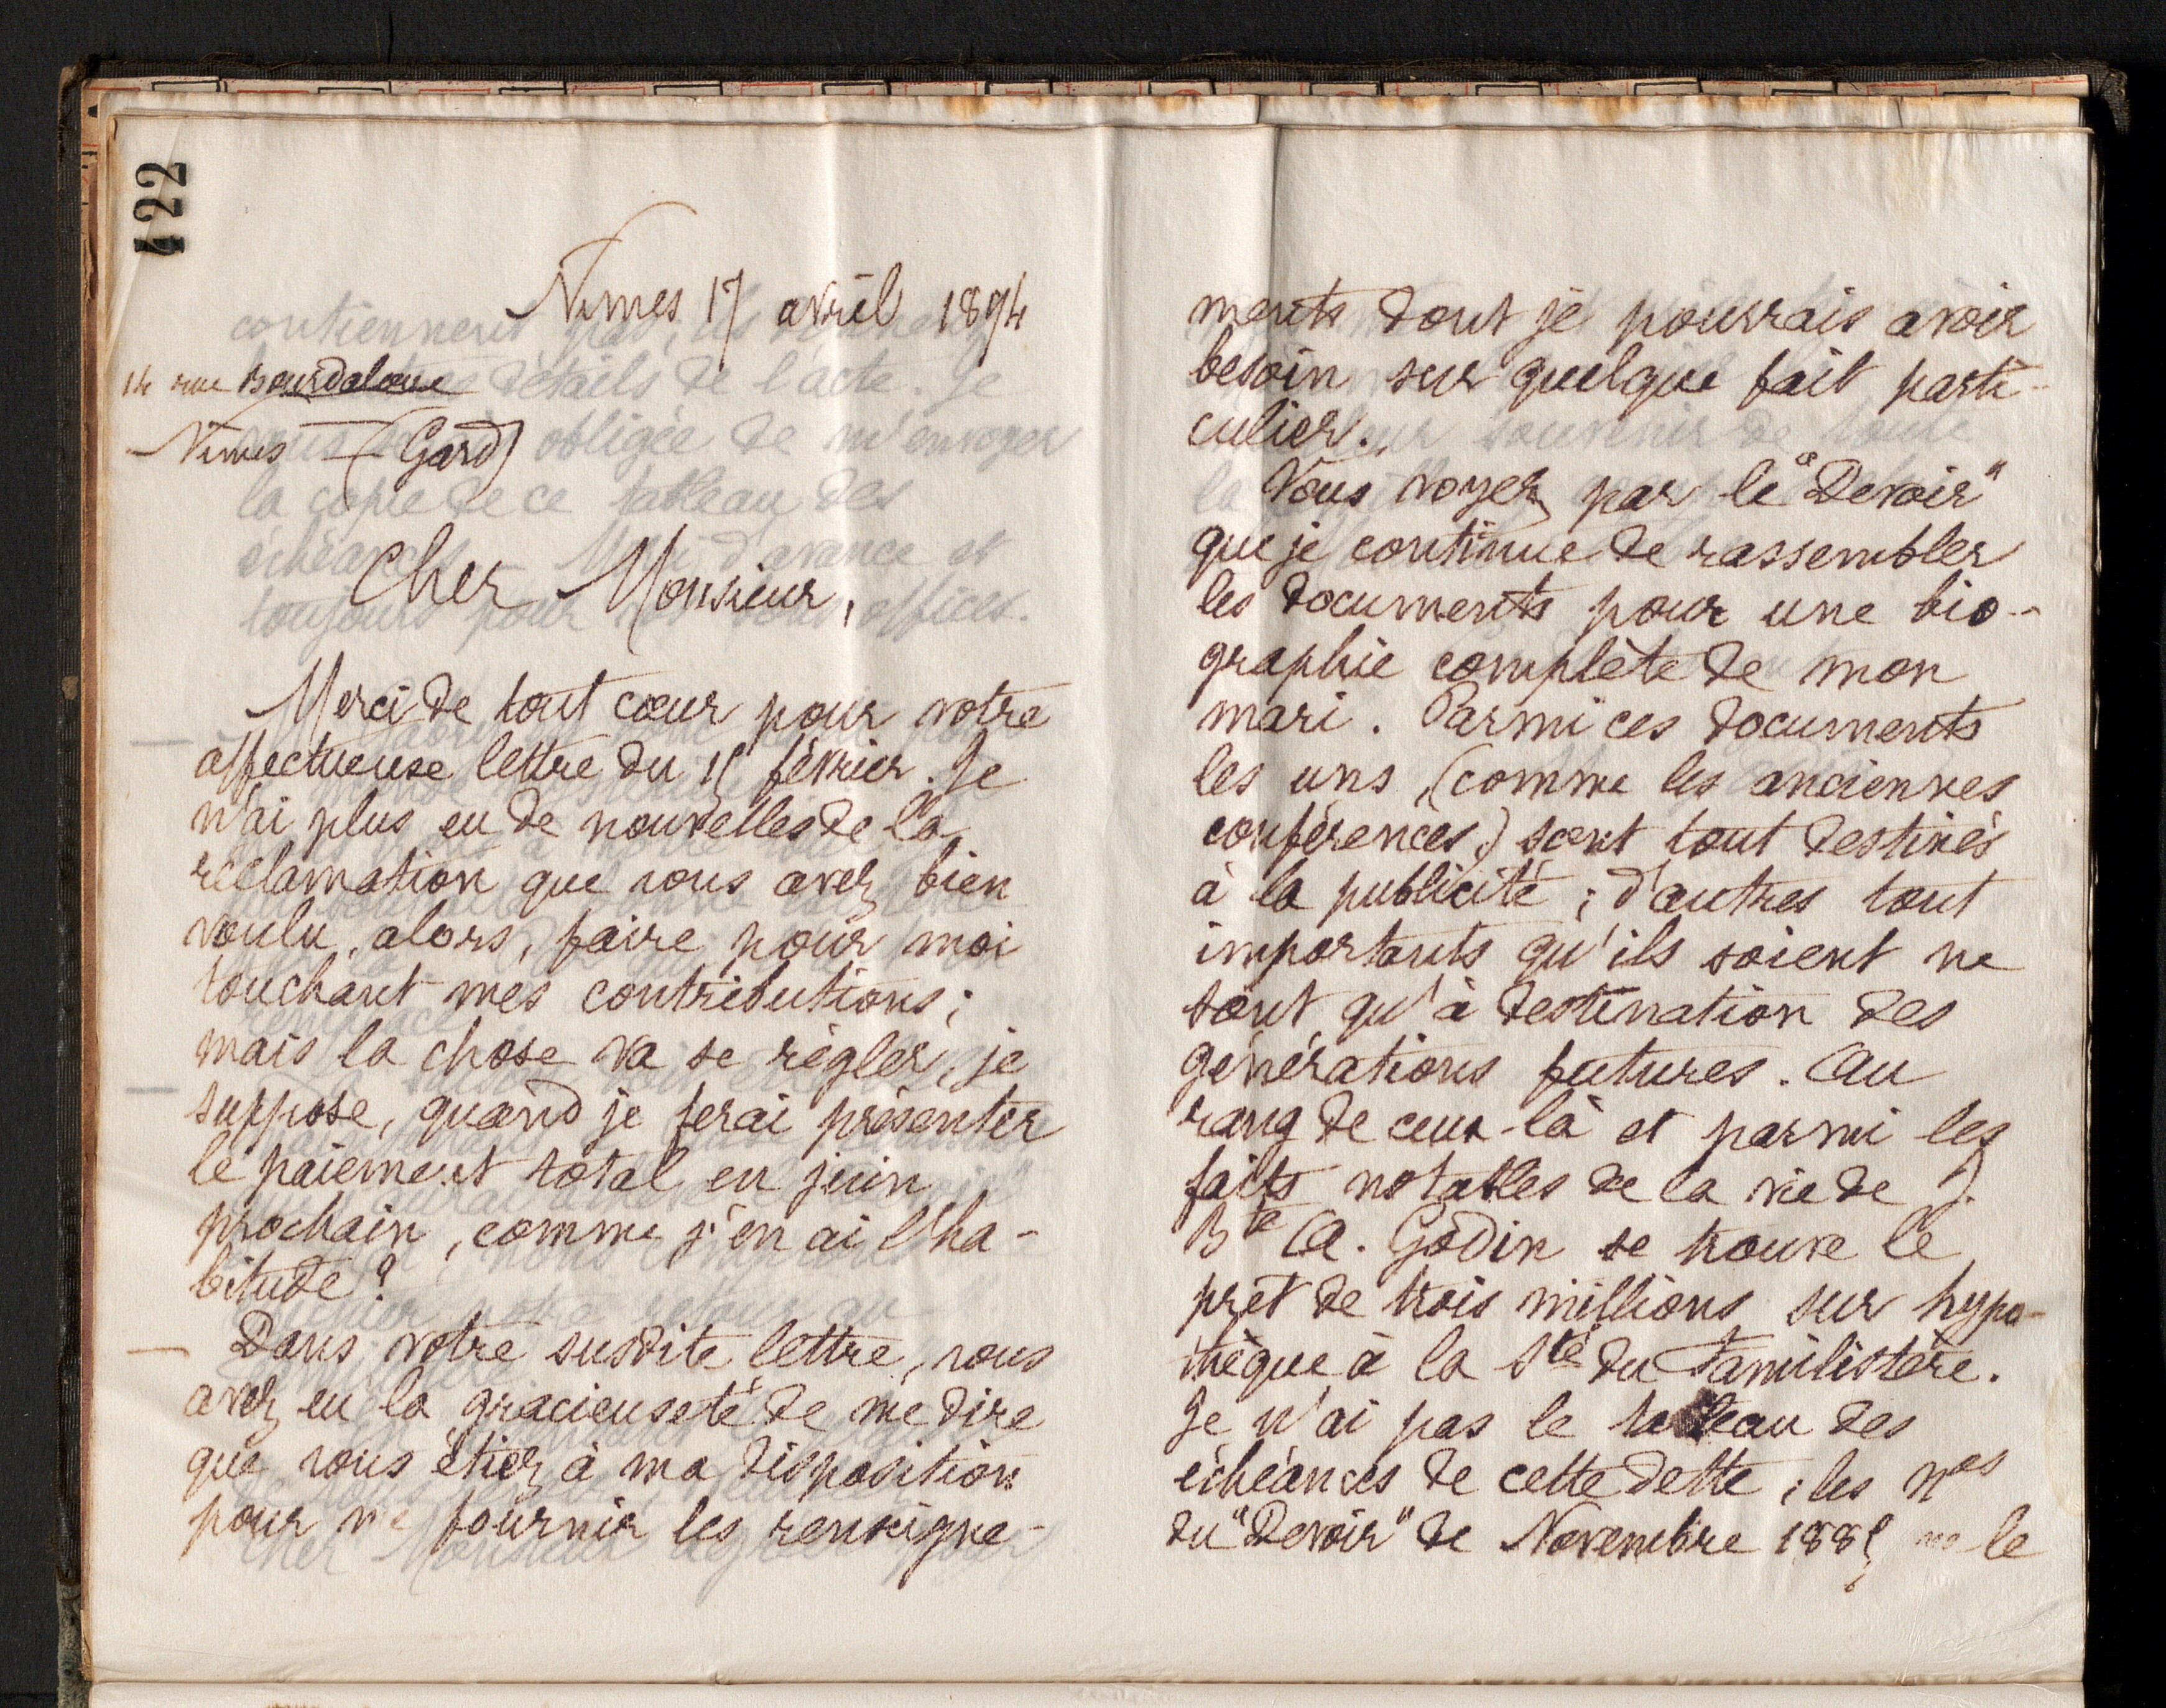 422
Nimes 17 avril 1894
14 rue Bourdaloue
Nimes (Gard)
Cher Monsieur,
Merci de tout cœur pour votre
affectueuse lettre du 15 février. Je
n'ai plus eu de nouvelles de la
réclamation que vous avez bien
voulu, alors, faire pour moi
touchant mes contributions;
mais la chose va se régler, je
suppose, quand je ferai présenter
le paiement total en juin
prochain, comme j'en ai l'ha-
bitude?
Dans votre susdite lettre, vous
avez eu la gracieuseté de me dire
que vous étiez à ma disposition
pour me fournir les renseigne-
ments dont je pourrais avoir
besoin sur quelque fait parti-
culier.
Vous voyez par le "Devoir"
que je continue de rassembler
les documents pour une bio-
graphie complète de mon
mari. Parmi ces documents
les uns, (comme les anciennes
conférences,) sont tout destinés
à la publicité; d'autres tout
importants qu'ils soient ne
sont qu'à destination des
générations futures. Au
rang de ceux-là et parmi les
faits notables de la vie de J.
Bte A. Godin se trouve le
prêt de trois millions sur hypo-
thèque à la Sté du Familistère.
Je n'ai pas le tableau des
échéances de cette dette; les nos
du "Devoir" de Novembre 1885 ne le